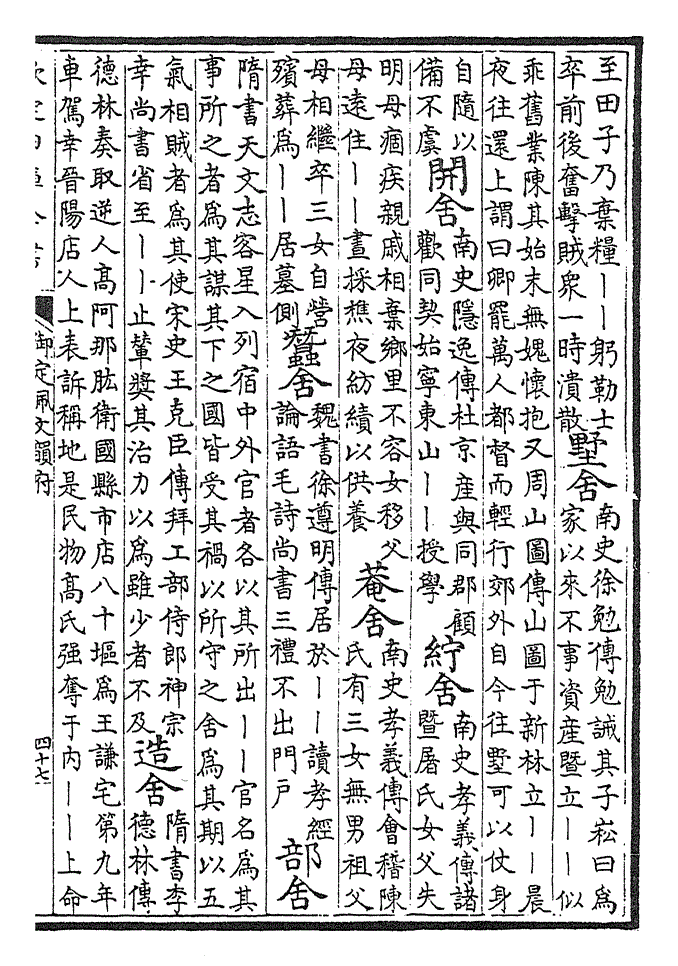 至田子乃棄糧丨丨躬勒士
卒前後奮擊賊衆一時潰散
墅舍
南史徐勉傳勉誡其子崧曰為
家以來不事資産暨立丨丨似
乖舊業陳其始末無媿懷抱又周山圖傳山圖于新林立丨丨晨
夜往還上謂曰卿罷萬人都督而輕行郊外自今往墅可以仗身
自隨以
備不虞
開舍
南史隱逸傳杜京産與同郡顧
歡同契始寧東山丨丨授學
紵舍
南史孝義傳諸
暨屠氏女父失
明母痼疾親戚相棄鄉里不容女移父
母遠住丨丨晝採樵夜紡績以供養
菴舍
南史孝義傳會稽陳
氏有三女無男祖父
母相繼卒三女自營
殯葬爲丨丨居墓側
蠶舍
魏書徐遵明傳居於丨丨讀孝經
論語毛詩尚書三禮不出門戸
部舍
隋書天文志客星入列宿中外官者各以其所出丨丨官名爲其
事所之者爲其謀其下之國皆受其禍以所守之舍爲其期以五
氣相賊者爲其使宋史王克臣傳拜工部侍郎神宗
幸尚書省至丨丨止輦奬其治力以爲雖少者不及
造舍
隋書李
德林傳
德林奏取逆人高阿那肱衛國縣市店八十堰爲王謙宅第九年
車駕幸晉陽店人上表訴稱地是民物高氏强奪于内丨丨上命
欽定四庫全書
御定佩文韻府
四十七